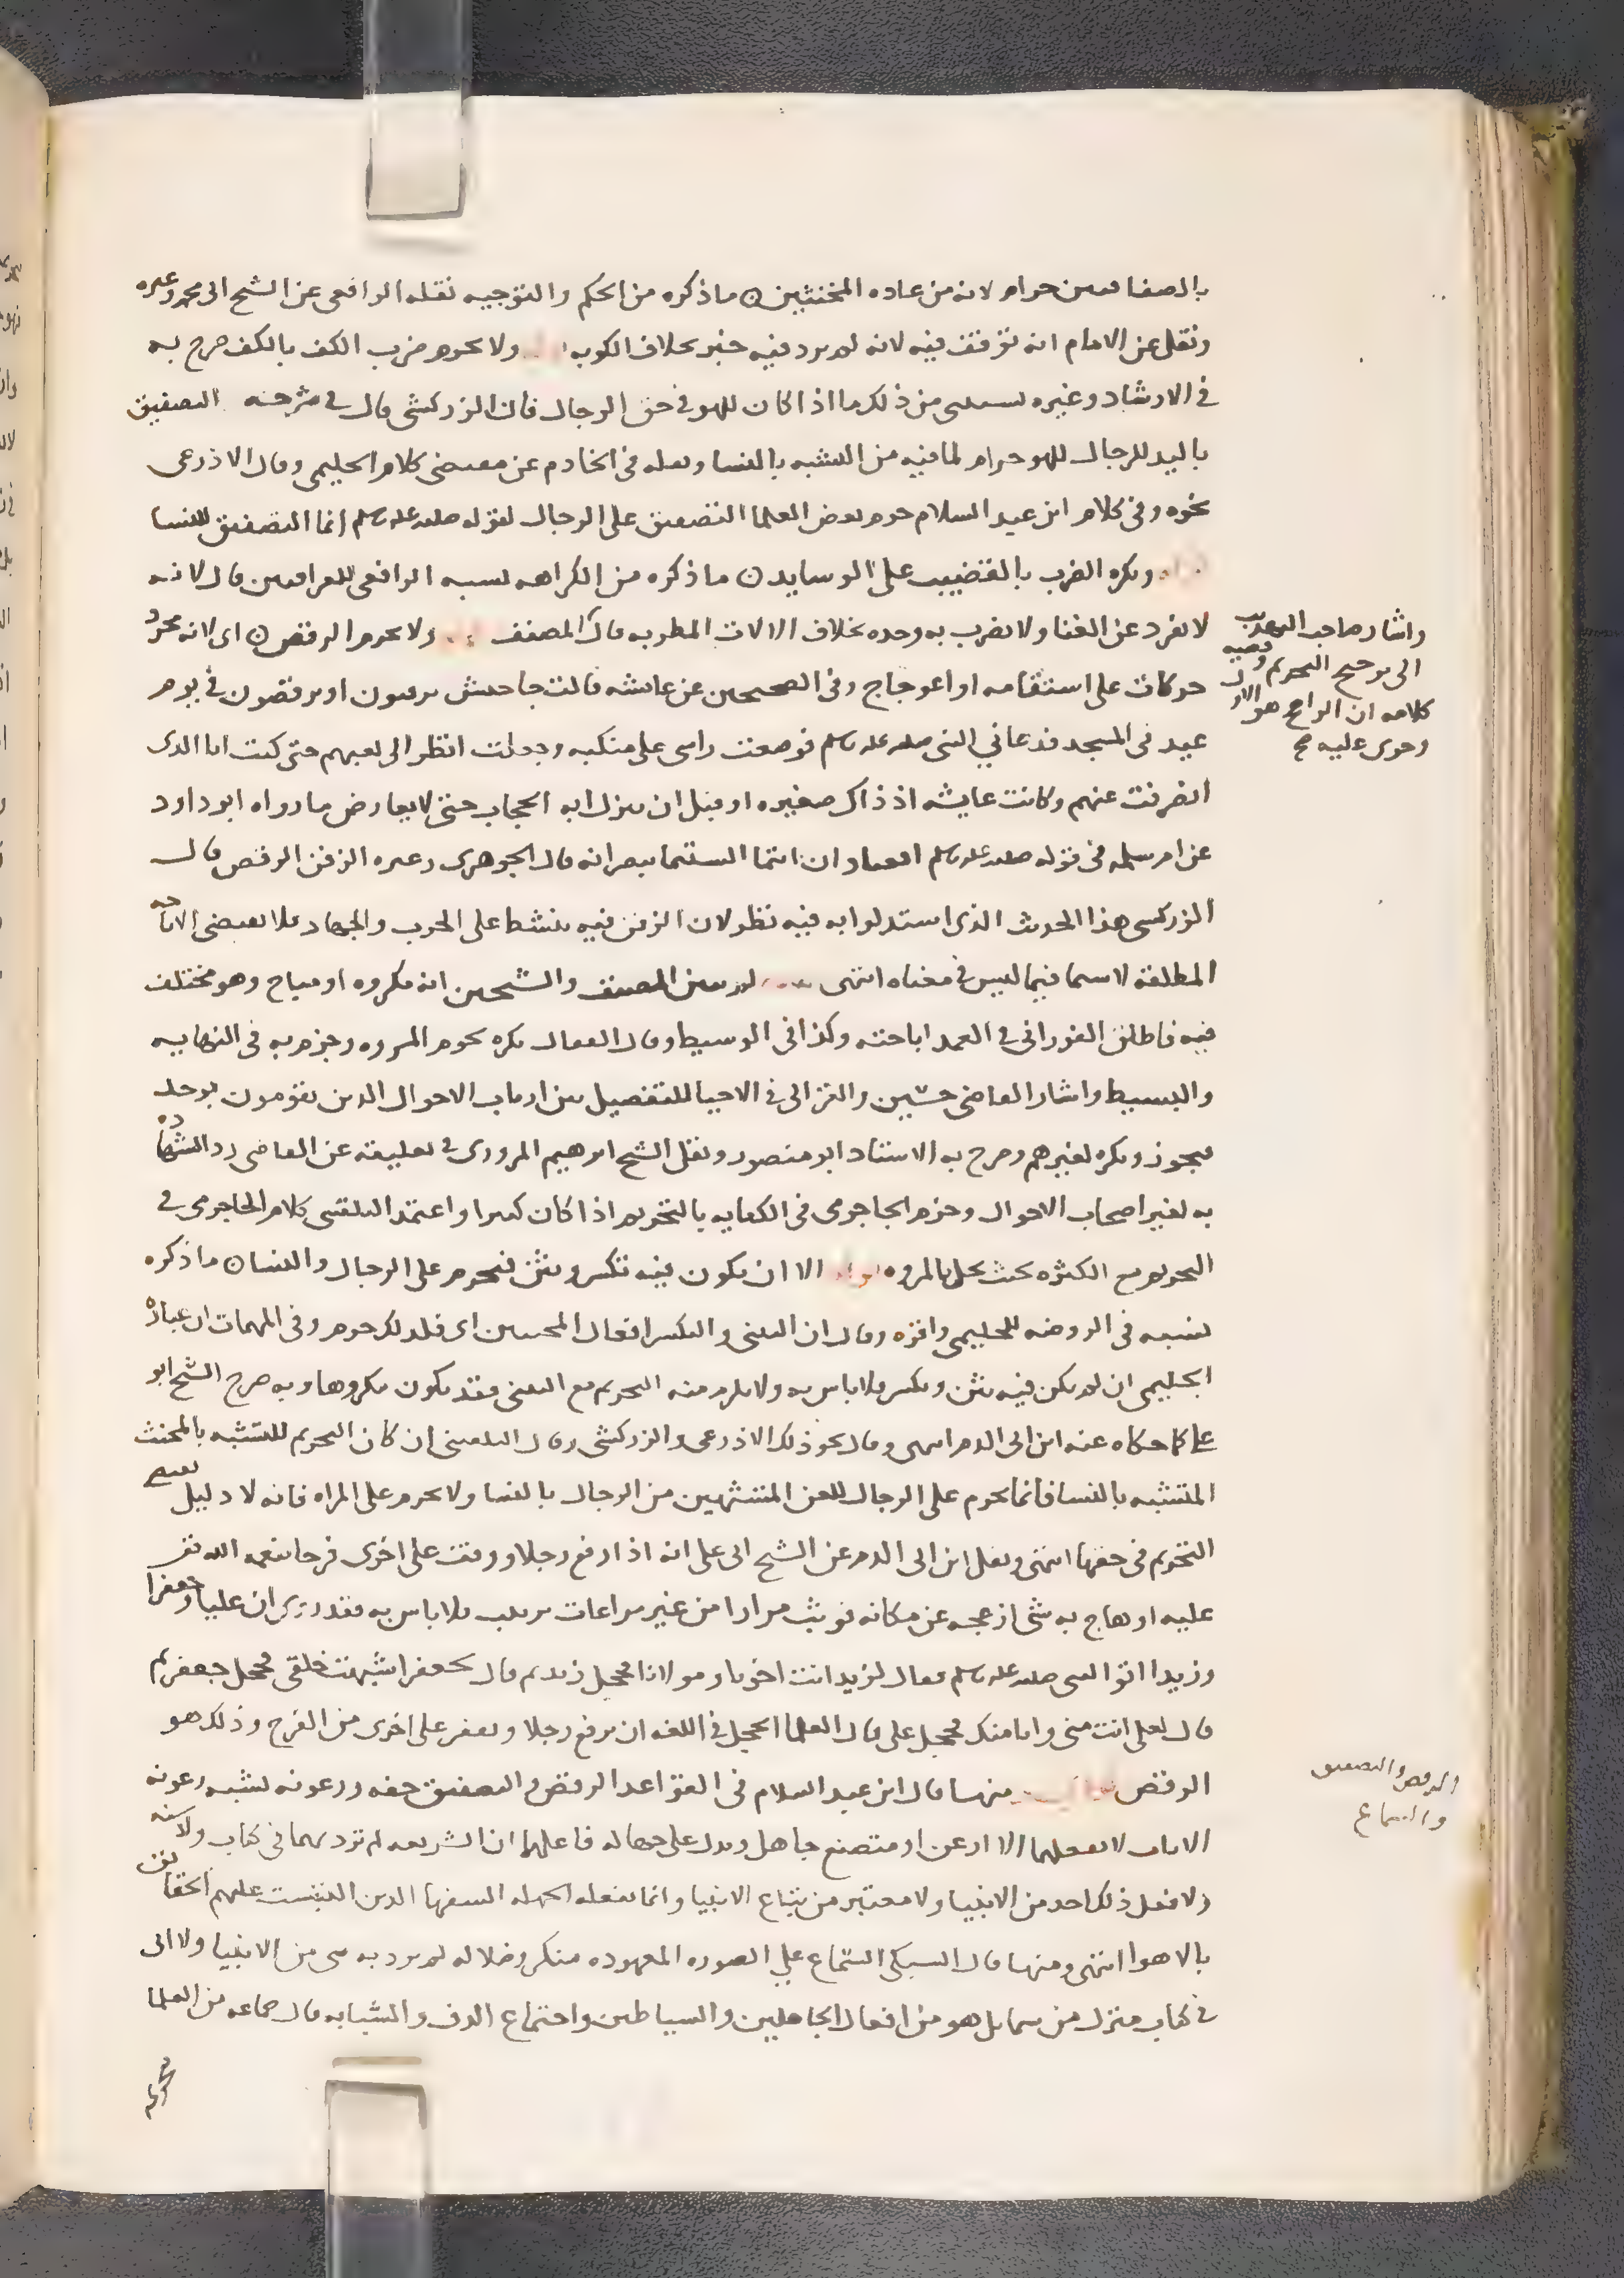 بالصفاقتين حرام لانه من عاده المخنثين ما ذكره من الحكم والتوجيه نقله الرافعي عن الشيخ ابي محمد وغيره
ونقل عن الامام انه توقف فيه لانه لم يرد فيه خبر بخلاف الكوبه ولا يحرم ضرب الكف بالكف صرح به
في الارشاد وغيره يستثنى من ذلك ما اذا كان للهو في حق الرجال فان الزركشي قال في شرحه التصفيق
باليد للرجال للهو حرام لما فيه من التشبه بالنسا ونقله في الخادم عن مقتضى كلام الحليمي وقال الاذرعي
نحوه وفي كلام ابن عبد السلام حرم بعض العلما التصفيق على الرجال لقوله صلى الله عليه وسلم انما التصفيق للنسا
ويكره الضرب بالقضيب على الوسايد ما ذكره من الكراهه نسبه الرافعي للعراقيين قال لانه
لا يفرد عن الغنا ولا يضرب به وحده بخلاف الالات المطربه قال المصنف ولا يحرم الرقص اى لانه مجرد
حركات على استقامه او اعوجاج وفي الصحيحين عن عايشه قالت جا حبش يزفنون او يرقصون في يوم
عيد في المسجد فدعاني النبي صلى الله عليه وسلم فوضعت راسى على منكبه وجعلت انظر الى لعبهم حتى كنت انا الذى
انصرفت عنهم وكانت عايشه اذ ذاك صغيره او قبل ان ينزل ايه الحجاب حتى لا يعارض ما رواه ابو داود
عن ام سلمه في قوله صلى الله عليه وسلم افعمياوان انتما الستما تبصرانه قال الجوهرى وغيره الزفن الرقص قال
الزركشي هذا الحديث الذى استدلوا به فيه نظر لان الزفن فيه ينشط على الحرب والجهاد فلا يقتضى الاباحه
المطلقه لا سيما فيما ليس في معناه انتهى لم يبين المصنف والشيخين انه مكروه او مباح وهو مختلف
فيه فاطلق الفوراني في العمد اباحته وكذا في الوسيط وقال القفال يكره بحرم المروه وجزم به في النهايه
والبسيط واشار القاضي حسين والغزالي في الاحيا للتفصيل بين ارباب الاحوال الذين يقومون بوجد
فيجوز ويكره لغيرهم وصرح به الاستاد ابو منصور ونقل الشيخ ابرهيم المرورى في تعليقته عن القاضي رد الشهاده
به لغير اصحاب الاحوال وجزم الجاجرمى في الكفايه بالتحريم اذا كان كثيرا واعتمد البلقيني كلام الجاجرمى في
التحريم مع الكثره بحيث يخل بالمروه الا ان يكون فيه تكسر وتثن فيحرم على الرجال والنسا ما ذكره
نسبه في الروضه للحليمي واقره وقال ان التثنى والتكسر افعال المخنثين اى فلذلك حرم وفي المهمات ان عباره
الحليمي ان لم يكن فيه تثن وتكسر فلا باس به ولا يلزم منه التحريم مع التثنى فقد يكون مكروها وبه صرح الشيخ ابو
علي كما حكاه عنه ابن ابي الدم انتهى وقال نحو ذلك الاذرعي والزركشي وقال البلقيني ان كان التحريم للتشبه بالمخنث
المتشبه بالنسا فانما يحرم على الرجال للعن المتشبهين من الرجال بالنسا ولا يحرم على المراه فانه لا دليل يقتضى
التحريم في حقها انتهى ونقل ابن ابي الدم عن الشيخ ابي على انه اذا رفع رجلا ووقف على اخرى فرحا بنعمه الله تعـ
عليه او هاج به شى ازعجه عن مكانه فوثب مرارا من غير مراعات ترتيب فلا باس به فقد روى ان عليا وجعفرا
وزيدا اتوا النبي صلى الله عليه وسلم فقال لزيد انت اخونا ومولانا فحجل زيد ثم قال لجعفر اشبهت خلقى فحجل جعفر ثم
قال لعلي انت منى وانا منك فحجل على قال العلما الحجل في اللغه ان يرفع رجلا ويقفز على اخرى من الفرح وذلك هو
الرقص منها قال ابن عبد السلام في القواعد الرقص والتصفيق خفه ورعونه تشبه رعونه
الاناث لا يفعلهما الا ارعن او متصنع جاهل ويدل على جهاله فاعلهما ان الشريعه لم ترد بهما في كتاب ولا سنه
ولا فعل ذلك احد من الانبيا ولا معتبر من تباع الانبيا وانما يفعله الجهله السفها الذين التبست عليهم الحقايق
بالاهوا انتهى ومنها قال السبكي السماع علي الصوره المعهوده منكر وضلاله لم يرد به شى من الانبيا ولا اتى
في كتاب منزل من سما بل هو من افعال الجاهلين والشياطين واجتماع الدف والشبابه قال جماعه من العلما
تحريم
واشار صاحب التهذيب
الى ترجيح التحريم وقضيه
كلامه ان الراجح هو الاول
وجرى عليه صح
الرقص والتصفيق
والسماع